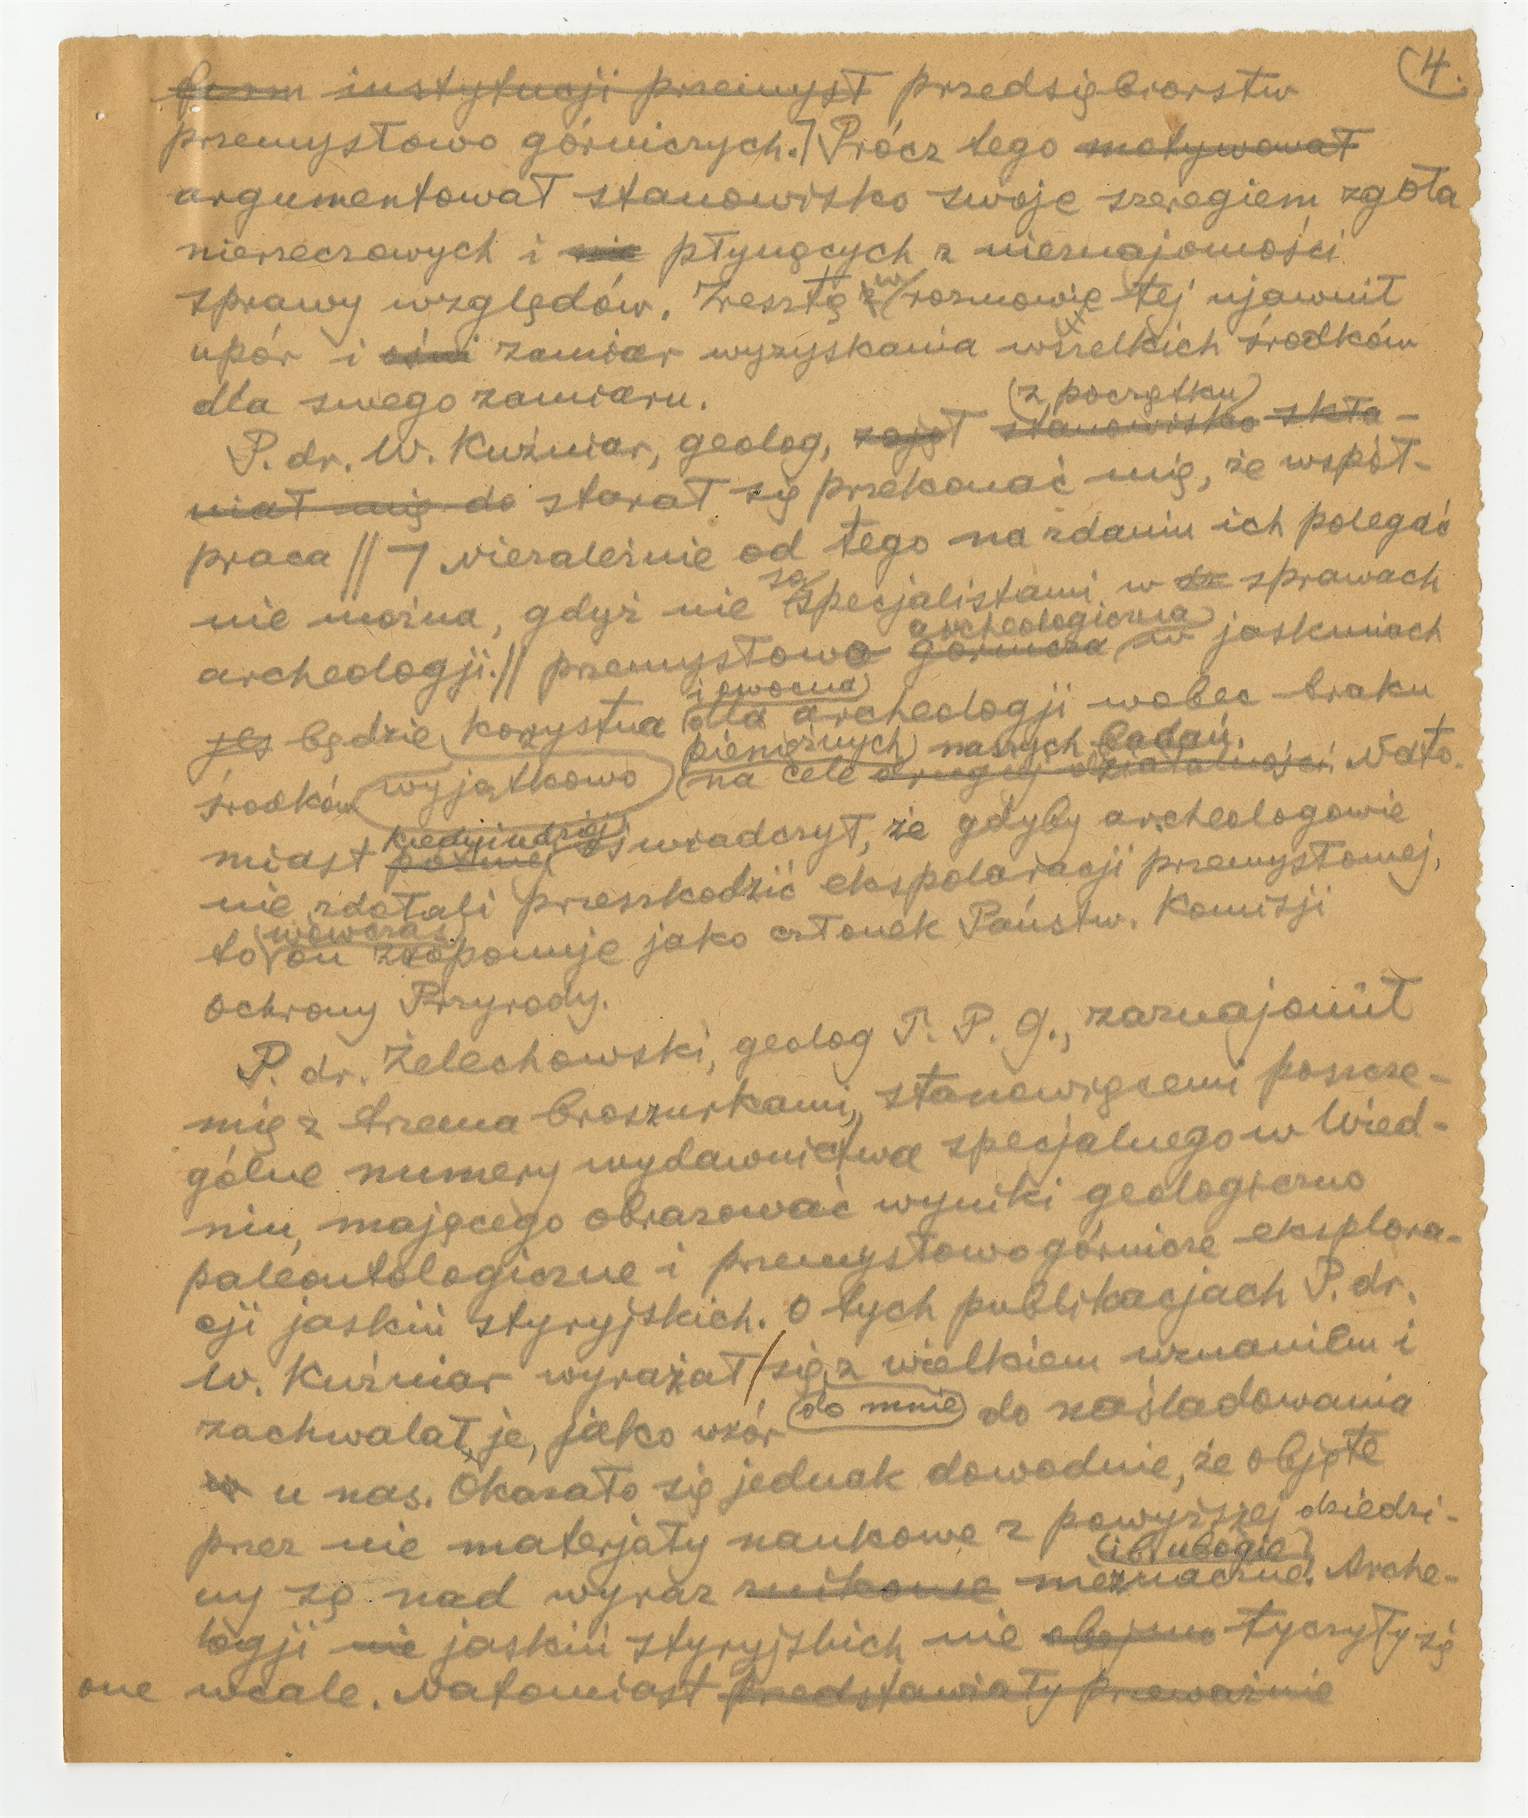 4.
firm instytucji przemysł przedsiębiorstw
przemysłowo górniczych.] Prócz tego motywował
argumentował stanowisko swoje szeregiem zgoła
nierzeczowych i nie płynących z nieznajomości
sprawy względów. Zresztą z w rozmowie tej ujawnił
upór i zamiar wyzyskania wszelkich środków
dla swego zamiaru.
(z początku)
P. dr. W. Kuźniar, geolog, zajął stanowisko skła-
niał mię do starał się przekonać mię, że współ-
praca // 7 Niezależnie od tego na zdaniu ich polegać
nie można, gdyż nie są specjalistami w sprawach
archeologiczna
archeologji.// przemysłowo górnicza w jaskiniach
i owocna
jes będzie korzystna dla archeologji wobec braku
pieniężnych naszych badań.
środków wyjątkowo na cele drugiej działalności. Nato-
kiedyindziej
miast później oświadczył, że gdyby archeologowie
nie zdołali przeszkodzić ekspolaracji przemysłowej,
wówczas
to on zaoponuje jako członek Państw. Komisji
Ochrony Przyrody.
P. dr. Żelechowski, geolog P. P. G., zaznajomił
mię z trzema broszurkami, stanowiącemi poszcze-
gólne numery wydawnictwa specjalnego w Wied-
niu, mającego obrazować wyniki geologiczno
paleontologiczne i przemysłowo górnicze eksplora-
cji jaskiń styryjskich. O tych publikacjach P. dr.
W. Kuźniar wyrażał się z wielkiem uznaniem i
zachwalał je, jako wzór (do mnie) do naśladowania
w u nas. Okazało się jednak dowodnie, że objęte
przez nie materjały naukowe z powyższej dziedzi-
(i b. ubogie)
ny są nad wyraz znikome nieznaczne. Arche-
logji nie jaskiń styryjskich nie obejmo tyczyły się
one wcale. Natomiast przedstawiały przeważnie